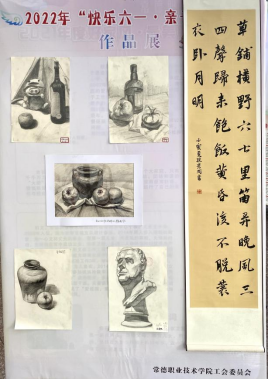 2022年“快乐六一·亲
作品展
草铺横野六七里笛弄晚风三
四声归来饱饭黄昏后不脱蓑
衣卧月明
常德职业技术学院工会委员会